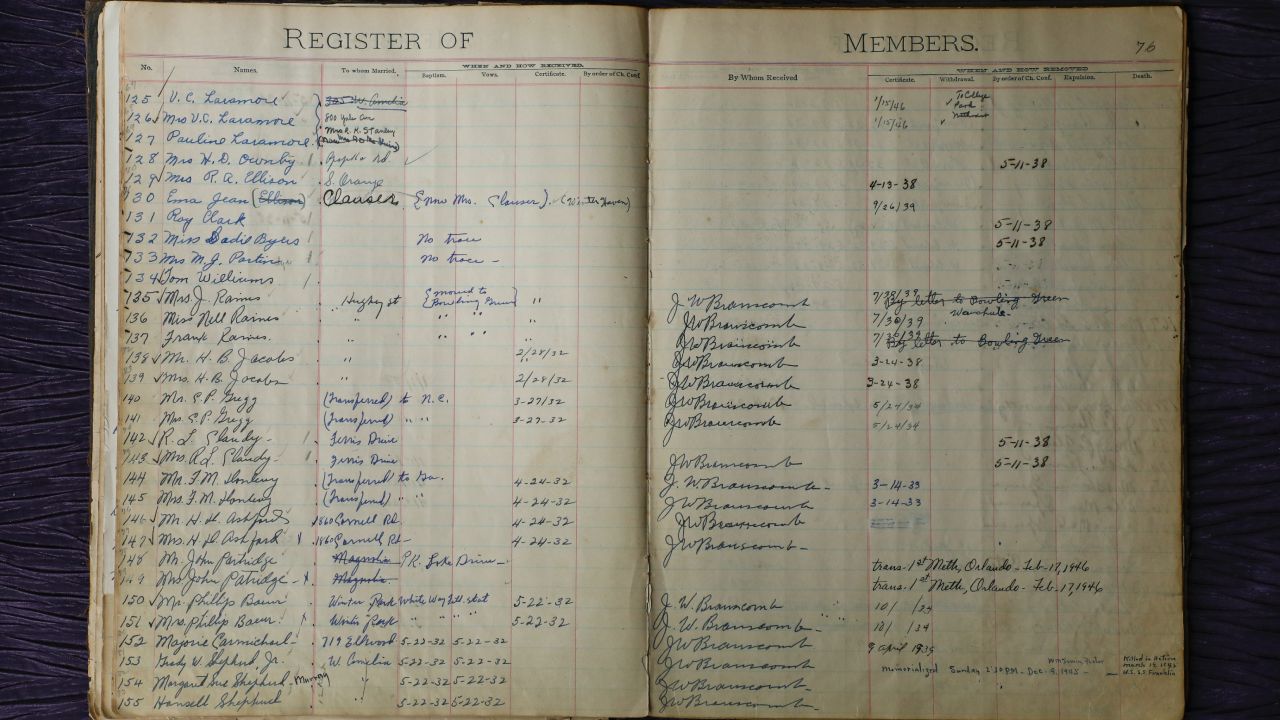 REGISTER OF MEMBERS. 76
WHEN AND HOW RECEIVED. WHEN AND HOW REMOVED
No. Names. To whom Married. Baptism. Vows. Certificate. By order of Ch. Conf. By Whom Received Certificate. Withdrawal. By order of Ch. Conf. Expulsion. Death.
125 V. C. Laramore 325 W. Amelia 1/15/46 To College
126 Mrs V.C. Laramore 1/15/46 Park
127 Pauline Laramore Mrs R. K. Stanley
128 Mrs H. D. Ownby Apopka Rd 5-11-38
129 Mrs R. A. Ellison S. Orange 4-13-38
130 Ema Jean (Ellison) Clauser (now Mrs. Clauser) (Winter Haven) 9/26/39
131 Roy Clark 5-11-38
132 Miss Sadie Byers No trace 5-11-38
133 Mrs M. J. Partin No trace -
134 Tom Williams
135 Mrs. J. Raines Hughey st moved to Bowling Green " J. W Branscomb 7/30/39 By letter to Bowling Green
136 Miss Nell Raines " " " " J W Branscomb 7/30/39
137 Frank Raines " " " " J W Branscomb 7/30/39 By letter to Bowling Green
138 Mr. H. B Jacobs " 2/28/32 J W Branscomb 3-24-38
139 Mrs. H. B. Jacobs " 2/28/32 J W Branscomb 3-24-38
140 Mr. S. P. Gregg (Transferred) to N. C. 3-27/32 J W Branscomb 5/24/34
141 Mrs. S. P. Gregg (Transferred) " " 3-27-32 J W Branscomb 5/24/34
142 R. L. Claudy Ferris Drive 5-11-38
143 Mrs. R. L. Claudy Ferris Drive J W Branscomb 5-11-38
144 Mr. F. M. (Transferred) to Ga. 4-24-32 J. W Branscomb 3-14-33
145 Mrs. F. M. (Transferred) " " 4-24-32 J W Branscomb 3-14-33
146 Mr H. H. Ashford 1860 Cornell Rd 4-24-32 J W Branscomb
147 Mrs. H. H. Ashford 1860 Cornell Rd 4-24-32 J W Branscomb
148 Mr. John Patridge Magnolia Drive trans. 1st Meth, Orlando - Feb-17, 1946
149 Mrs John Patridge Magnolia trans. 1st Meth, Orlando - Feb-17, 1946
150 Mr. Phillip Baur Winter Park 5-22-32 J. W. Branscomb 10/ /34
151 Mrs. Phillip Baur Winter Park " 5-22-32 J. W. Branscomb 10/ /34
152 Marjorie Carmichael 719 Elwood 5-22-32 5-22-32 J W Branscomb 9 April 1935
153 Grady W. Shepherd, Jr. W Amelia 5-22-32 5-22-32 J W Branscomb Memorialized Sunday 2:30 P.M. - Dec. 9, 1945 - Killed in Action March 19, 1945 U.S.S. Franklin
154 Margaret Sue Shepherd - Murray " 5-22-32 5-22-32 J W Branscomb
155 Hansell Shepherd 5-22-32 5-22-32 J W Branscomb